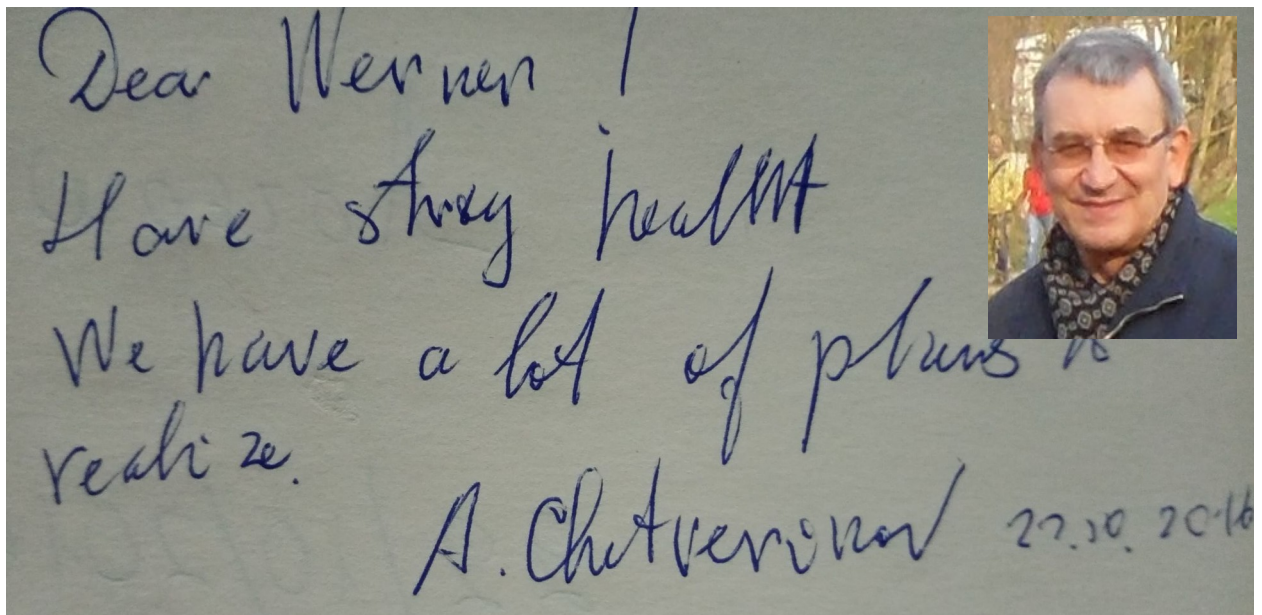 Dear Werner !
Have strong health
We have a lot of plans to
realize.
A. Chetverikov 22.10.2016